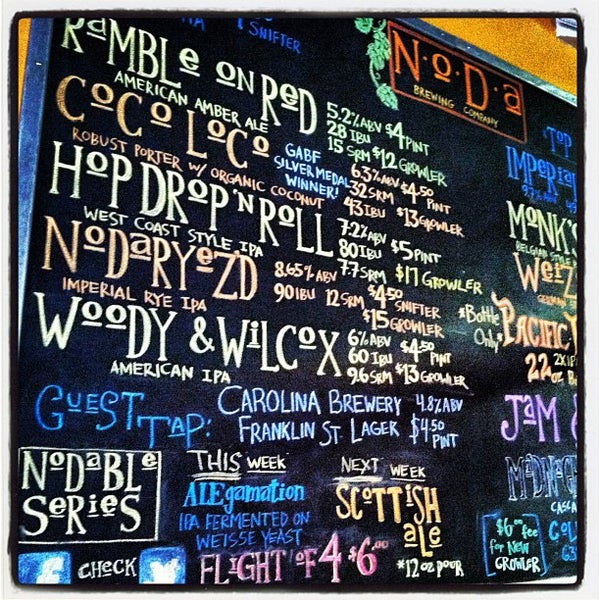 IPA SNIFTER
N.O.D.a
BREWING COMPANY
RaMBLe ON ReD
AMERICAN AMBER ALE
5.2% ABV $4 PINT
28 IBU
15 SRM $12 GROWLER
CoCo LoCo
ROBUST PORTER W/ ORGANIC COCONUT
GABF
SILVER MEDAL
WINNER!
6.3% ABV $4.50 PINT
32 SRM
43 IBU $13 GROWLER
HOP DROP 'N ROLL
WEST COAST STYLE IPA
7.2% ABV $5 PINT
80 IBU
7.7 SRM $17 GROWLER
NoDaRYeZD
IMPERIAL RYE IPA
8.65% ABV $4.50 SNIFTER
90 IBU 12 SRM
$15 GROWLER
WooDY & WiLCoX
AMERICAN IPA
6% ABV $4.50 PINT
60 IBU
9.6 SRM $13 GROWLER
GUeST TAP:
CAROLINA BREWERY 4.8% ABV
FRANKLIN ST. LAGER $4.50 PINT
NoDaBLe SeRieS
THIS WEEK
ALEgamation
IPA FERMENTED ON
WEISSE YEAST
NEXT WEEK
SCoTTiSH
aLe
FLIGHT OF 4 $6.00
*12oz POUR
f CHECK
TOP
IMPeria
MONK'S
BELGIAN STYLE
GERMAN
*Bottle
Only*
PACIFIC
22 oz
JaM &
$6.00 fee
for New
GROWLER